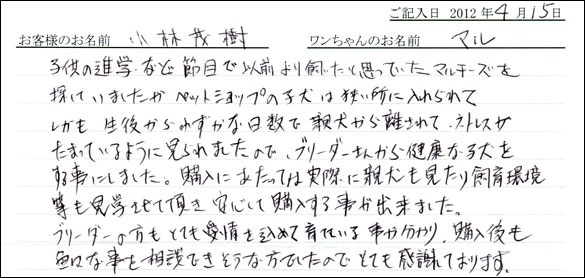 ご記入日 2012年4月15日
お客様のお名前 小林茂樹 ワンちゃんのお名前 マル
子供の進学など節目で以前より飼いたいと思っていたマルチーズを
探していましたが ペットショップの子犬は狭い所に入れられて
しかも 生後からわずかな日数で親犬から離されて、ストレスが
たまっているように見られましたので、ブリーダーさんから健康な子犬を
する事にしました。購入にあたっては実際に親犬も見たり飼育環境
等も見学させて頂き 安心して購入する事が出来ました。
ブリーダーの方もとても愛情を込めて育てている事が分かり、購入後も
色々な事を相談できそうな方でしたのでとても感謝しております。